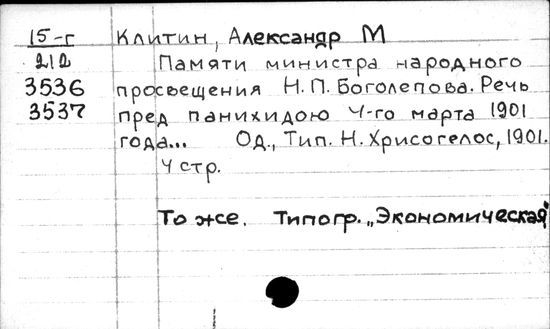 15-г Клитин, Александр М
212 Памяти министра народного
3536 просвещения Н. П. Боголепова. Речь
3537 пред панихидою 4-го марта 1901
года... Од., Тип. Н. Хрисогелос, 1901.
4 стр.
То же. Типогр. „Экономическая"